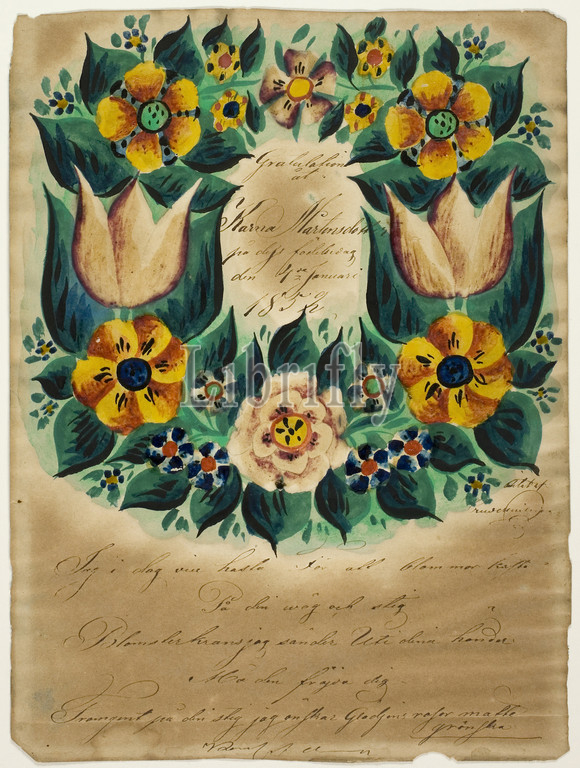 Gratulation
åt
Karna Mårtensdotter
på dess födelsedag
den Januari
Librifly
Jag i dag vill hasta för att blommor kasta
På din wäg och stig
Blomsterkrans jag sänder Uti dina händer
Må den fröjda dig.
på din stig jag önskar Glädjens rosor måtte
grönska